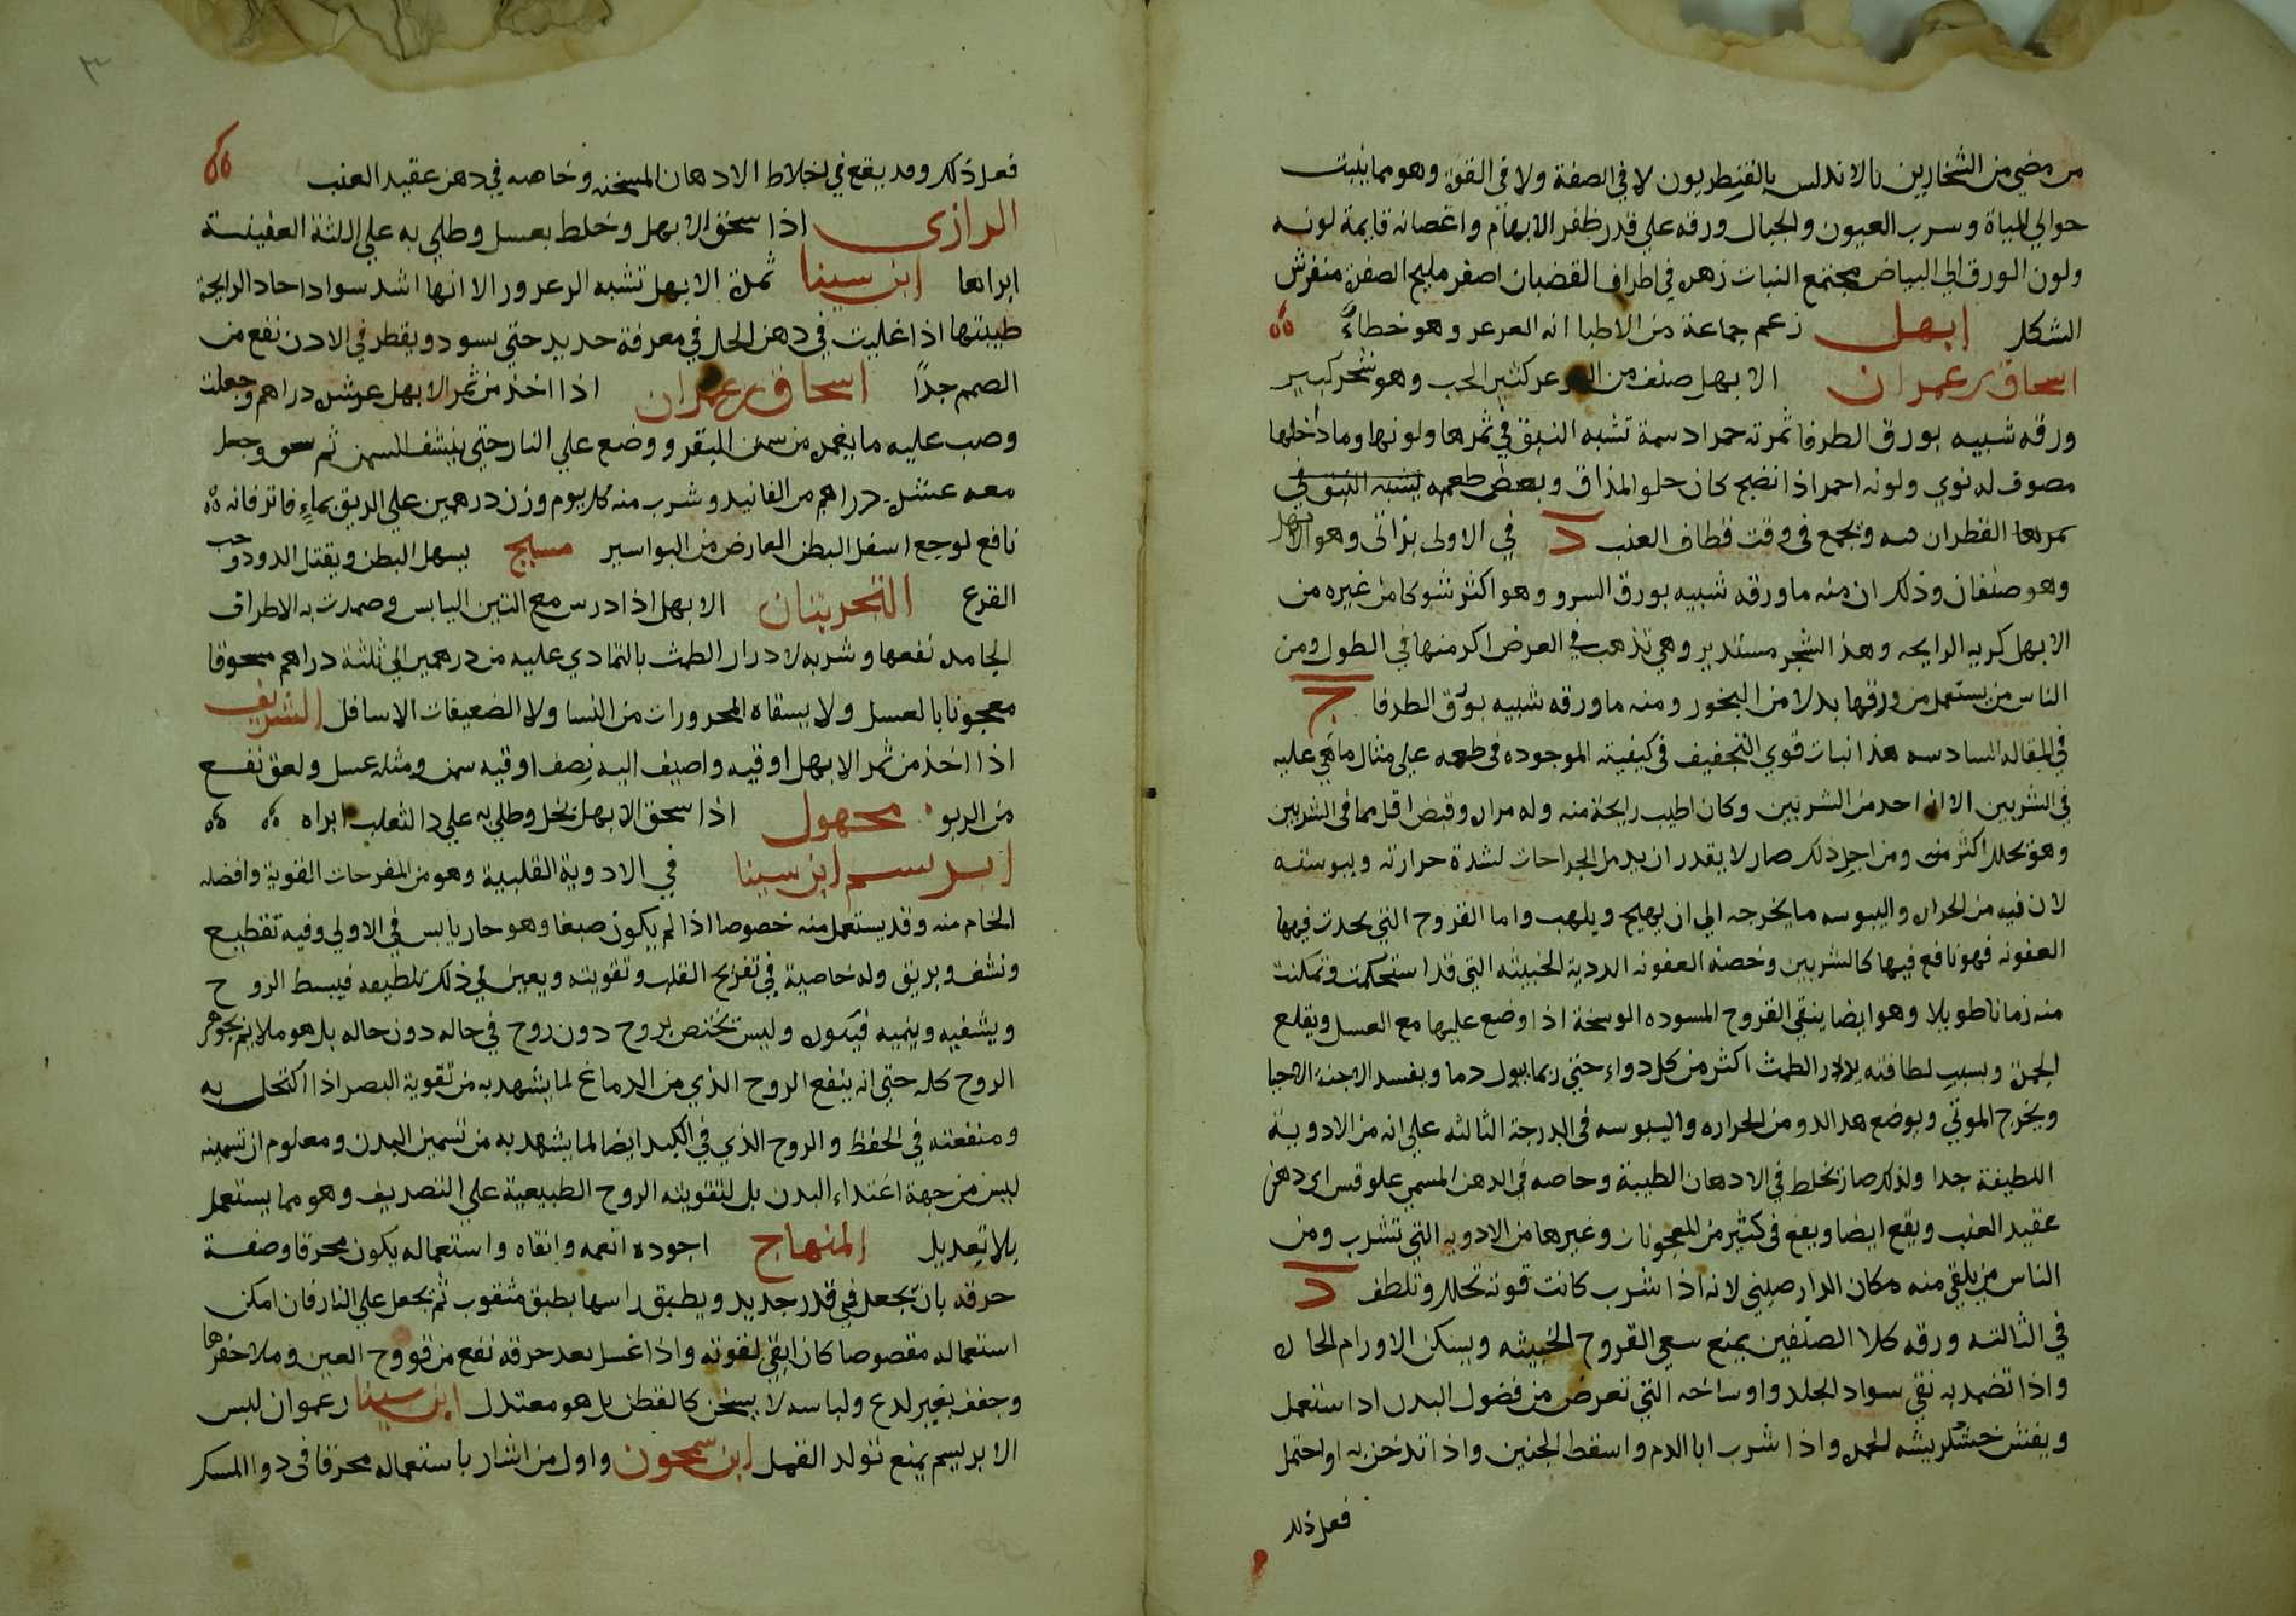 من مضي من الشخارين بالاندلس بالقنطريون لا في الصفة ولا في القوة وهو مما ينبت
حوالي المياة وسرب العيون والجبال ورقه علي قدر ظفر الابهام واغصانه قايمة لونه
ولون الورق الي البياض مجتمع النبات زهره في اطراف القضبان اصفر مليح الصفرة منفرش
الشكل ابهل زعم جماعة من الاطبا انه العرعر وهو خطاء
اسحاق بن عمران الابهل صنف من العرعر كثير الحب وهو شجر كبير
ورقه شبيه بورق الطرفا ثمرته حمرا دسمة تشبه النبق في ثمرها ولونها وما داخلها
مصوف له نوي ولونه احمر اذا نضج كان حلو المذاق وبعض طعمه يشبه النبق في
ثمرها القطران فيه ويجمع في وقت قطاف العنب د في الاولى براثي وهو الابهل
وهو صنفان وذلك ان منه ما ورقه شبيه بورق السرو وهو اكثر شوكا من غيره من
الابهل كريه الرايحه وهذا الشجر مستدير وهي تذهب في العرض اكثر منها في الطول ومن
الناس من يستعمل من ورقها بدلا من البخور ومنه ما ورقه شبيه بورق الطرفا ج
في المقاله السادسه هذا نبات قوي التجفيف في كيفيته الموجوده في طعمه علي مثال ما هي عليه
في الشربين الا انه احد من الشربين وكان اطيب رايحة منه وله مراره وقبض اقل مما في الشربين
وهو يحلل اكثر منه ومن اجل ذلك صار لا يقدر ان يدمل الجراحات لشدة حرارته ويبوسته
لان فيه من الحراره واليبوسه ما يخرجه الي ان يهيج ويلهب واما القروح التي يحدث فيها
العفونه فهو نافع فيها كالشربين وخصه العفونه الردية الخبيثه التي قد استحكمت وتمكنت
منه زمانا طويلا وهو ايضا ينقي القروح المسوده الوسخة اذا وضع عليها مع العسل ويقلع
الجمرة وبسبب لطافته يدر الطمث اكثر من كل دواء حتي ربما يبول دما ويفسد الاجنة الاحيا
ويخرج الموتي ويوضع هذا الدوا من الحراره واليبوسه في الدرجة الثالثه علي انه من الادوية
اللطيفة جدا ولذلك صار يخلط في الادهان الطيبة وخاصه في الدهن المسمي علوقس اي دهن
عقيد العنب ويقع ايضا ويقع في كثير من المعجونات وغيرها من الادويه التي تشرب ومن
الناس من يلقي منه مكان الدارصيني لانه اذا شرب كانت قوته تحلل وتلطف د
في الثالثه ورقه كلا الصنفين يمنع سعي القروح الخبيثه ويسكن الاورام الحاره
واذا تضمد به نقي سواد الجلد واوساخه التي تعرض من فضول البدن اذا استعمل
ويفتش خشكريشه الجمر واذا شرب ابال الدم واسقط الجنين واذا تدخن به او احتمل
فعل ذلك
فعل ذلك وقد يقع في اخلاط الادهان المسخنه وخاصه في دهن عقيد العنب
الرازي اذا سحق الابهل وخلط بعسل وطلي به علي اللثة العفينة
ابراها ابن سينا ثمرة الابهل تشبه الزعرور الا انها اشد سوادا حاد الرايحة
طيبتها اذا غليت في دهن الحل في معرفة حديد حتي يسود ويقطر في الاذن نفع من
الصمم جدا اسحاق بن عمران اذا اخذ من ثمر الابهل عشر دراهم وجعلت
وصب عليه ما يغمره من سمن البقر ووضع علي النار حتي ينشف السمن ثم سحق وجعل
معه عشر دراهم من الفانيد وشرب منه كل يوم وزن درهمين علي الريق بماء فاتر فانه
نافع لوجع اسفل البطن العارض من البواسير مسيح يسهل البطن ويقتل الدود وحب
القرع التجربتان الابهل اذا درس مع التين اليابس وضمدت به الاطراف
الجامده نفعها وشربه لادرار الطمث بالتمادي عليه من درهمين الي ثلثة دراهم مسحوقا
معجونا بالعسل ولا يسقاه المحرورات من النسا ولا الضعيفات الاسافل الشريف
اذا اخذ من ثمر الابهل اوقيه واضيف اليه نصف اوقيه سمن ومثله عسل ولعق نفع
من الربو مجهول اذا سحق الابهل بخل وطلي به علي دا الثعلب ابراه
ابريسم ابن سينا في الادوية القلبية وهو من المفرحات القوية وافضله
الخام منه وقد يستعمل منه خصوصا اذا لم يكون صبغا وهو حار يابس في الاولي وفيه تقطيع
ونشف وبريق وله خاصية في تفريح القلب وتقويته ويعين في ذلك تلطيفه فيبسط الروح
ويشفيه وينميه فيكون وليس تختص بروح دون روح في حاله دون حاله بل هو ملايم بجوهر
الروح كله حتي انه ينفع الروح الذي من الدماغ لما يشهد به من تقوية البصر اذا اكتحل به
ومنفعته في الحفظ والروح الذي في الكبد ايضا لما يشهد به من تسمين البدن ومعلوم ان تسمينه
ليس من جهة اغتداء البدن بل لتقويته الروح الطبيعية علي التصريف وهو مما يستعمل
بلا تعديل المنهاج اجوده انعمه وانقاه واستعماله يكون محرقا وصفة
حرقه بان يجعل في قدر جديد ويطبق راسها بطبق مثقوب ثم يجعل علي النار فان امكن
استعماله مقصوصا كان ابقي لقوته واذا غسل بعد حرقه نفع من قروح العين وملا حفرها
وجفف بغير لدع ولباسه لا يسخن كالقطن بل هو معتدل ابن سينا زعموا ان لبس
الابريسم يمنع تولد القمل ابن سمجون واول من اشار باستعماله محرقا في دوا المسك